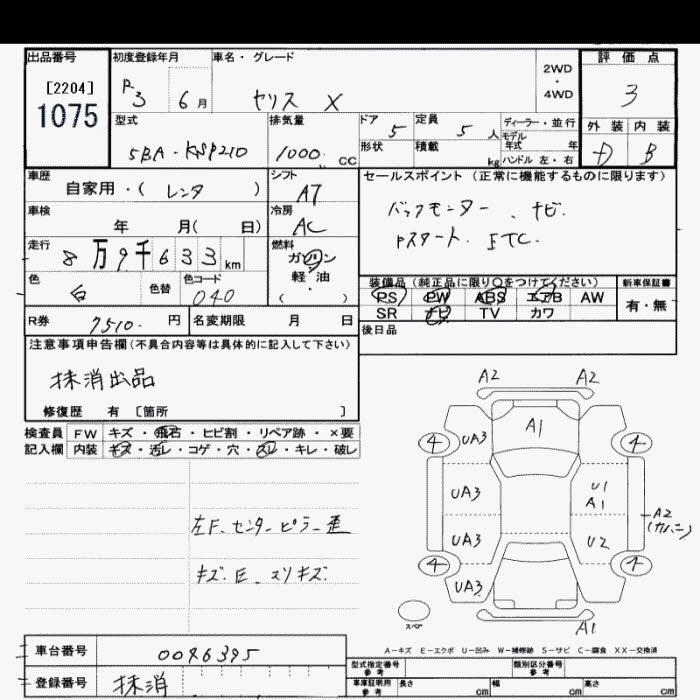 出品番号 初度登録年月 車名・グレード 2WD・4WD 評価点
[2204]
1075
R3 6月 ヤリス X 3
型式 排気量 ドア 定員 ディーラー・並行
5BA-KSP210 1000 CC 5 5人 モデル年式 年
形状 積載 kg ハンドル 左・右
外装 内装
D B
車歴 シフト セールスポイント (正常に機能するものに限ります)
自家用・( レンタ ) AT
バックモニター、ナビ
Pスタート、ETC.
車検 冷房
年 月( 日) AC
走行 燃料
8万9千633km ガソリン
軽・油
( )
色 色替 色コード
白 040
装備品 (純正品に限り○をつけてください) 新車保証書
PS PW ABS エアB AW 有・無
SR ナビ TV カワ
R券 7510. 円 名変期限 月 日 後日品
注意事項申告欄(不具合内容等は具体的に記入して下さい)
抹消出品
修復歴 有 [箇所 ]
検査員記入欄 FW キズ・飛石・ヒビ割・リペア跡・×要
内装 キズ・汚レ・コゲ・穴・スレ・キレ・破レ
左F、センターピラー歪
キズ.E.スリキズ.
A2 A2
A1
4 UA3 4
UA3 U1
A1
A2
UA3 U2
4 UA3 4
スペア
A1
A-キズ E-エクボ U-凹み W-補修跡 S-サビ C-腐食 XX-交換済
車台番号 0096395
登録番号 抹消
型式指定番号 参考 類別区分番号 参考
車庫証明用 参考 長さ cm 幅 cm 高さ cm